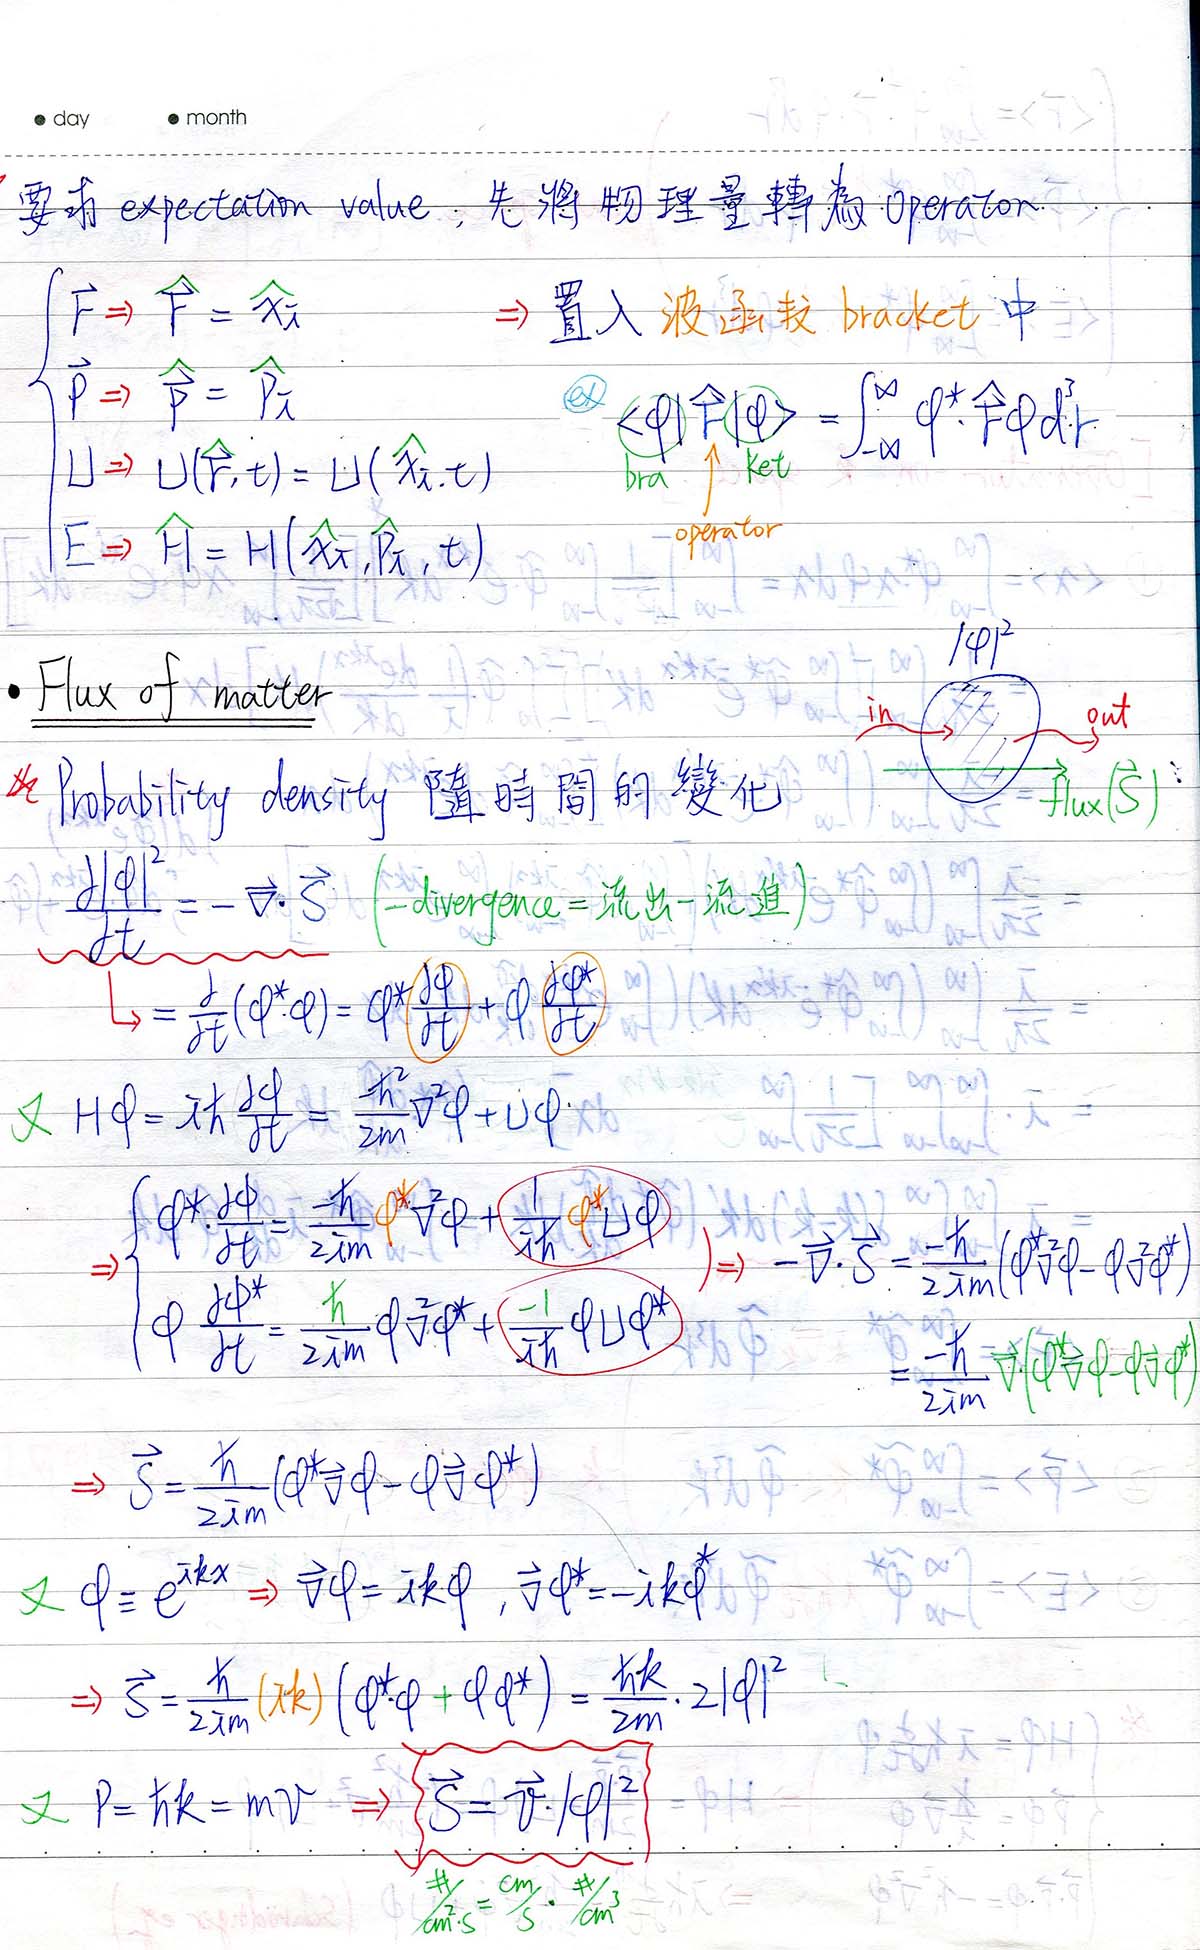 • day • month
要求 expectation value, 先將物理量轉為 Operator
r⃗ ⇒ r̂ = x̂ᵢ ⇒ 置入 波函数 bracket 中
p⃗ ⇒ p̂ = p̂ᵢ
ex <φ|r̂|φ> = ∫_{-∞}^{∞} φ*·r̂φ d³r
bra ket
U ⇒ U(r̂, t) = U(x̂ᵢ, t)
operator
E ⇒ Ĥ = H(x̂ᵢ, p̂ᵢ, t)
|φ|²
• Flux of matter
in out
flux(S⃗)
※ Probability density 隨時間的變化
∂|φ|²/∂t = -∇⃗·S⃗ (-divergence = 流出-流進)
↳ = ∂/∂t(φ*·φ) = φ* ∂φ/∂t + φ ∂φ*/∂t
又 Hφ = iħ ∂φ/∂t = -ħ²/2m ∇²φ + Uφ
⇒ φ*·∂φ/∂t = -ħ/2im φ*∇²φ + 1/iħ φ*Uφ
φ ∂φ*/∂t = ħ/2im φ∇²φ* + -1/iħ φUφ*
⇒ -∇⃗·S⃗ = -ħ/2im (φ*∇²φ - φ∇²φ*)
= -ħ/2im ∇⃗·(φ*∇⃗φ - φ∇⃗φ*)
⇒ S⃗ = ħ/2im (φ*∇⃗φ - φ∇⃗φ*)
又 φ ≡ e^{ikx} ⇒ ∇⃗φ = ikφ , ∇⃗φ* = -ikφ*
⇒ S⃗ = ħ/2im (ik) (φ*·φ + φφ*) = ħk/2m · 2|φ|²
又 P = ħk = mv ⇒ S⃗ = v⃗·|φ|²
#/cm²·s = cm/s · #/cm³